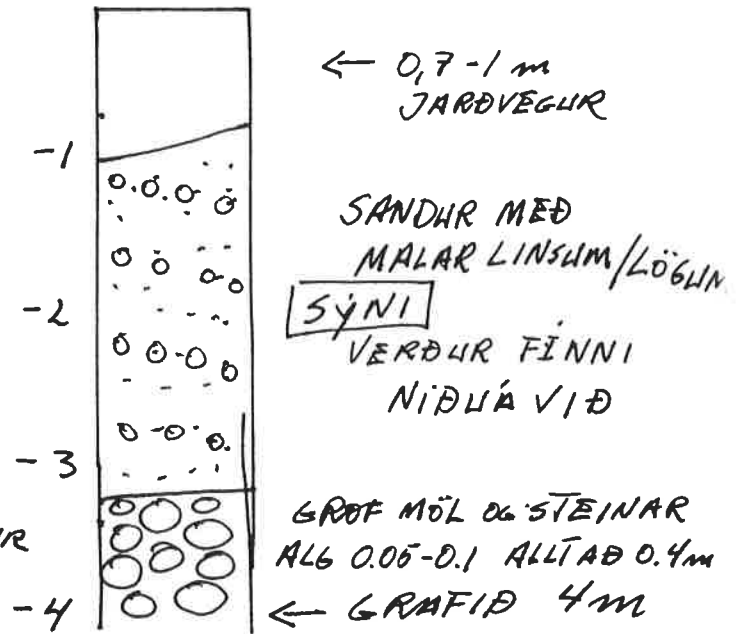 ← 0,7-1 m
JARÐVEGUR
-1
SANDUR MEÐ
MALAR LINSUM/LÖGUM
-2
SÝNI
VERÐUR FÍNNI
NIÐUÁ VIÐ
-3
GRÓF MÖL OG STEINAR
ALG 0.05-0.1 ALLT AÐ 0.4m
-4
← GRAFIÐ 4m